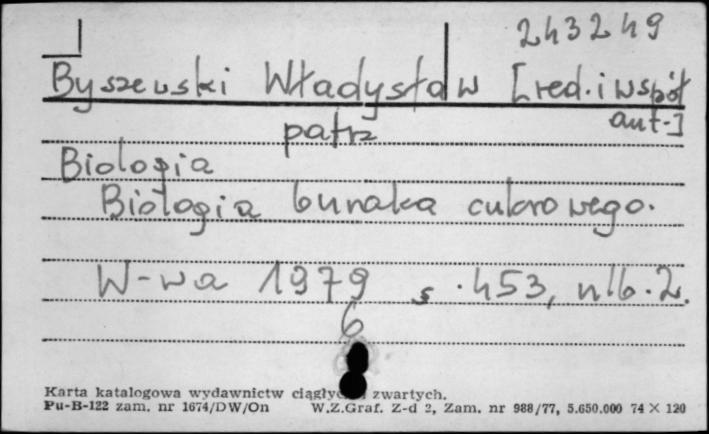 243249
Byszewski Władysław [red. i współ
aut.]
patrz
Biologia
Biologia buraka cukrowego.
W-wa 1979 s. 453, nlb. 2.
6
Karta katalogowa wydawnictw ciągłych zwartych.
Pu-B-122 zam. nr 1674/DW/On W.Z.Graf. Z-d 2, Zam. nr 988/77, 5.650.000 74 × 120